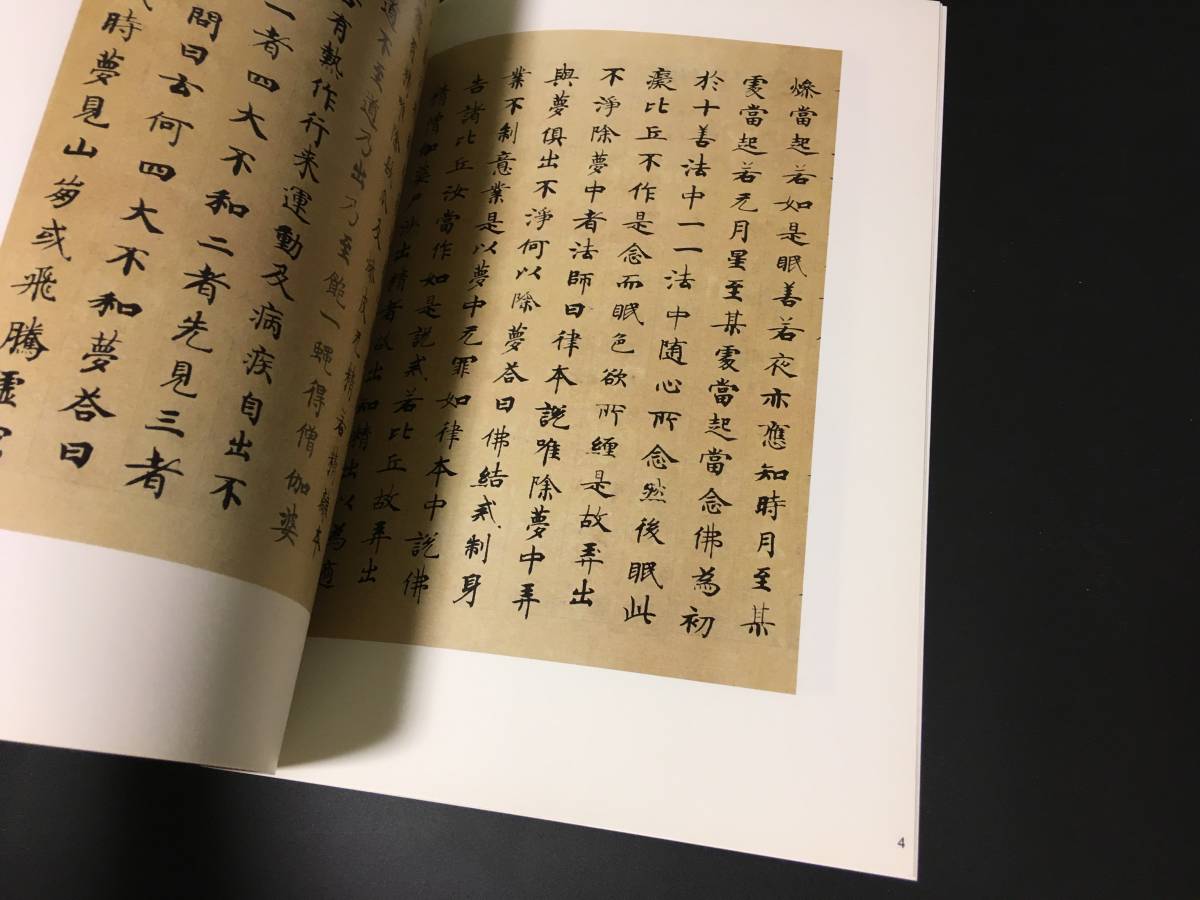 燥當起若如是眠善若夜亦應知時月至某
處當起若无月星至某處當起當念佛為初
於十善法中一一法中随心所念然後眠此
癡比丘不作是念而眠色欲所纏是故弄出
不淨除夢中者法師曰律本說唯除夢中弄
與夢俱出不淨何以除夢荅曰佛結戒制身
業不制意業是以夢中无罪如律本中說佛
告諸比丘汝當作如是說戒若比丘故弄出
精僧伽婆尸沙出精者故出知精出以為適
道不至道乃出乃至飽一蝇得僧伽婆
有熱作行来運動及病疾自出不
一者四大不和二者先見三者
問曰云何四大不和夢荅曰
時夢見山崩或飛騰虛空
4